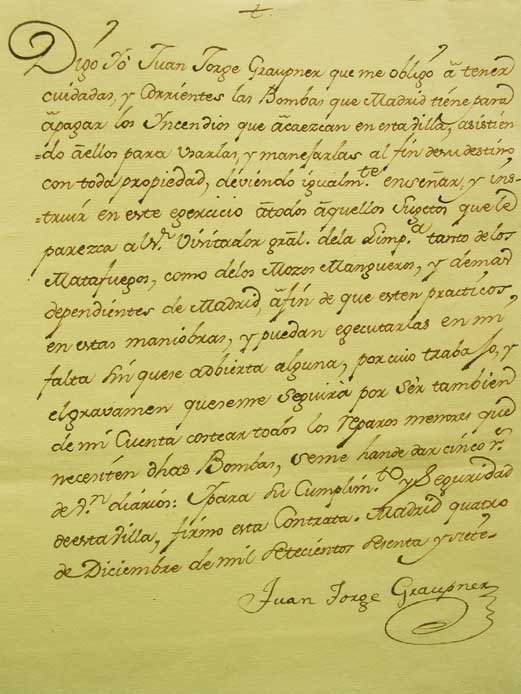 Digo Yo Juan Jorge Graupner que me obligo â tener
cuidadas, y Corrientes las Bombas que Madrid tiene para
âpagar los Yncendios que âcaezcan en esta Villa, asistien-
=do âellos para usarlas, y manejarlas al fin de su destino
con toda propiedad, deviendo igualm.te enseñar, y ins-
=truir en este egercicio âtodos âquellos Sugetos que le
parezca al S.r Visitador gral. dela Limp.a tanto de los
Matafuegos, como delos Mozos Mangueros, y demas
dependientes de Madrid, âfin de que esten practicos,
en estas maniobras, y puedan egecutarlas en mi
falta sin quese adbierta alguna, por cuio trabajo, y
el gravamen queseme seguirá por sér tambien
de mi Cuenta costear todos los reparos menores que
necesiten dhas Bombas, seme hande dar cinco r.s
de v.n diários: Ypara su Cumplim.to y Seguridad
de esta Villa, firmo esta Contrata. Madrid quatro
de Diciembre de mil Setecientos sesenta y siete.
Juan Jorge Graupner